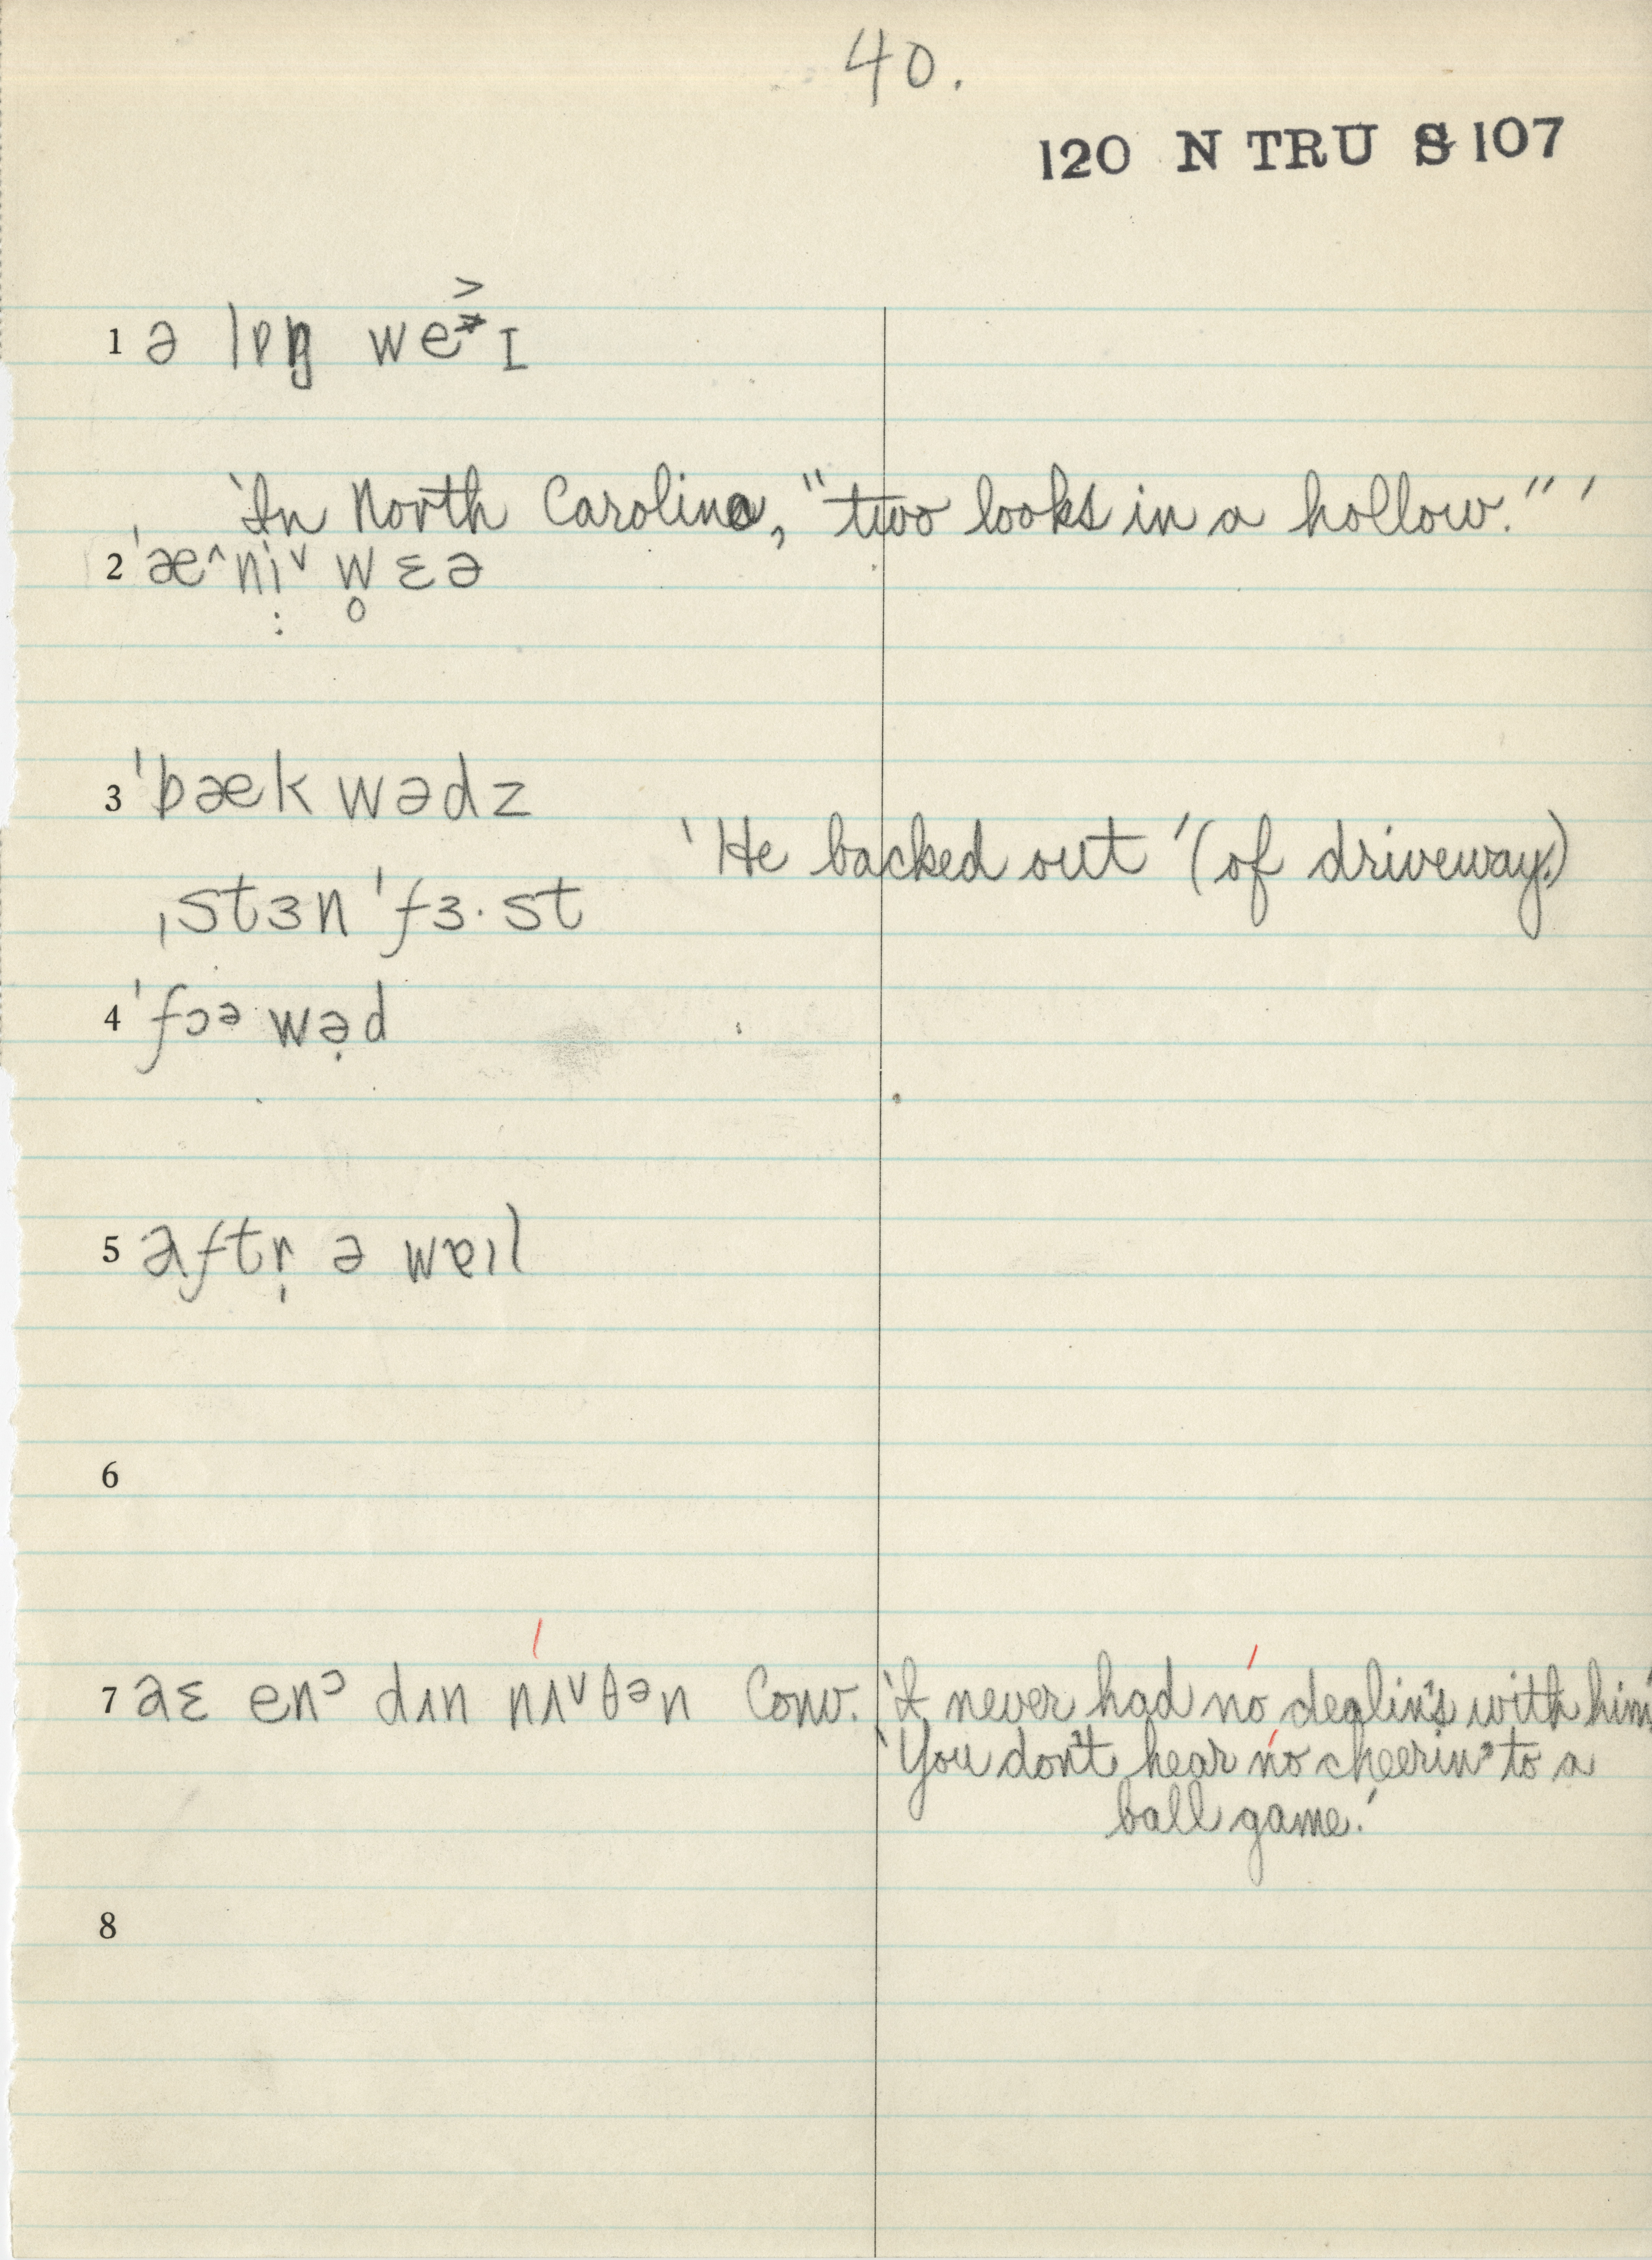 40.
120 N TRU S 107
1 ə lɒŋ we˃ɪ
'In North Carolina, "two looks in a hollow."'
2 ˈæ^ni˅ w̥ɛə
3 ˈbækwədz
'He backed out' (of driveway.)
ˌstɜnˈfɜ·st
4 ˈfɔəwə̣d
5 aftr̩ ə wɐɪl
7 aɛ enᵓ dɪn nɪ˅θən Conv. 'I never had no dealin's with him'
'You don't hear no cheerin' to a
ball game.'
6
8